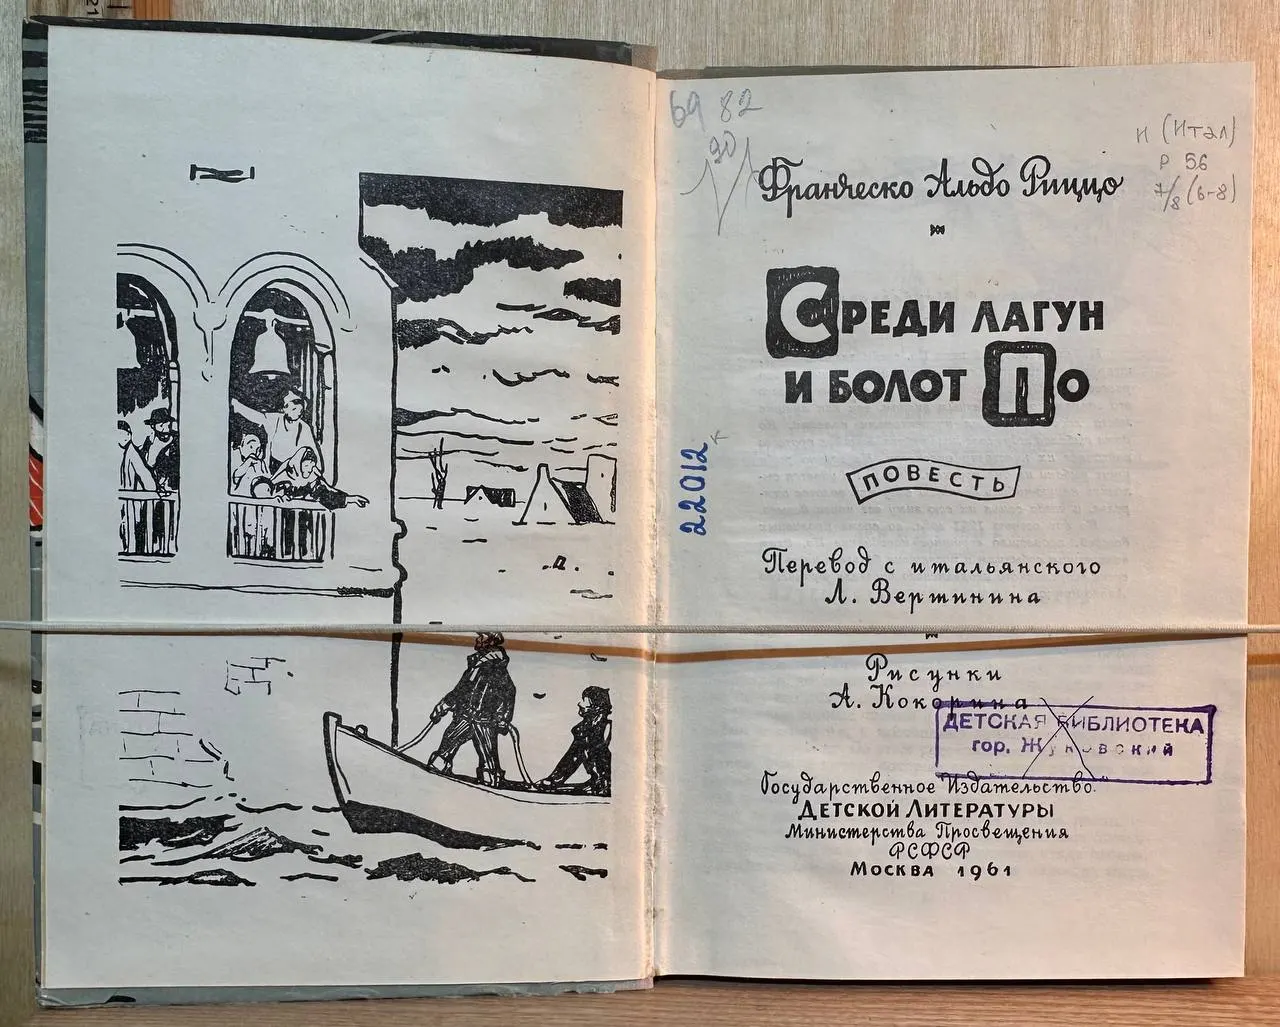 21
69 82
90
И (Итал)
Р 56
7/8 (6-8)
Франческо Альдо Риццо
СРЕДИ ЛАГУН
И БОЛОТ ПО
ПОВЕСТЬ
22012
Перевод с итальянского
Л. Вершинина
Рисунки
А. Кокорина
ДЕТСКАЯ БИБЛИОТЕКА
гор. Жуковский
Государственное Издательство
ДЕТСКОЙ ЛИТЕРАТУРЫ
Министерства Просвещения
РСФСР
МОСКВА 1961